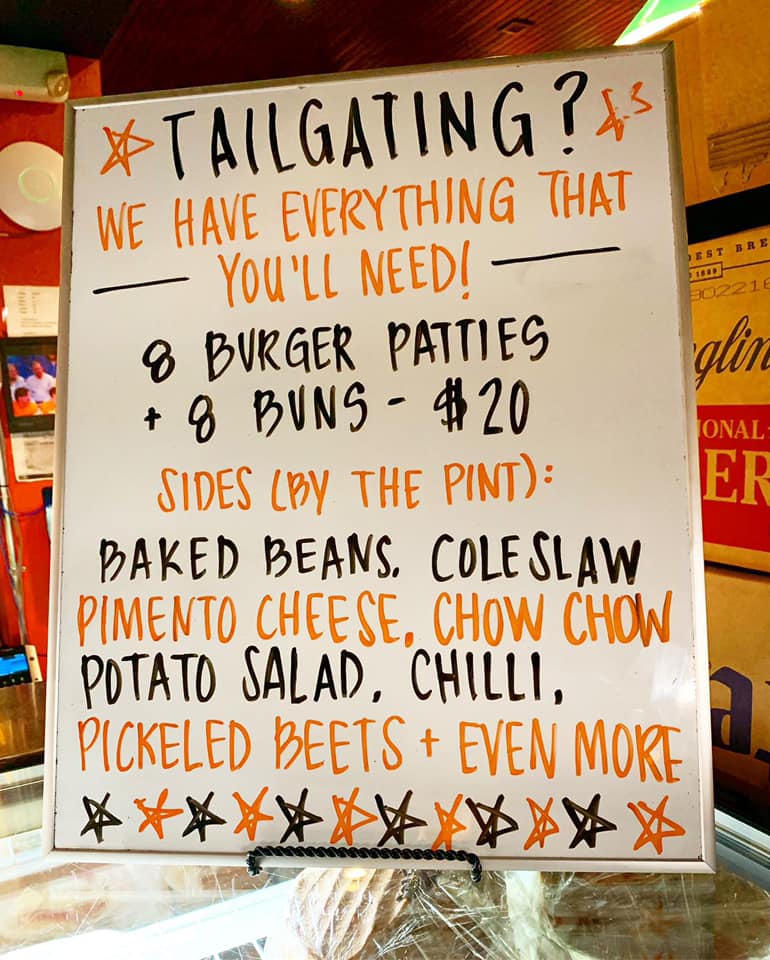 TAILGATING?
WE HAVE EVERYTHING THAT
YOU'LL NEED!
8 BURGER PATTIES
+ 8 BUNS - $20
SIDES (BY THE PINT):
BAKED BEANS. COLESLAW
PIMENTO CHEESE, CHOW CHOW
POTATO SALAD, CHILLI,
PICKELED BEETS + EVEN MORE